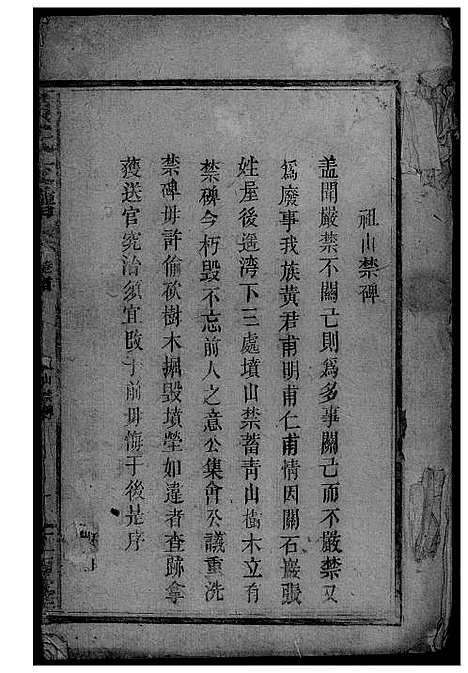 祖山禁碑
盖聞嚴禁不關己則爲多事關己而不嚴禁又
爲廢事我族黃君甫明甫仁甫情因關石巖張
姓屋後遥湾下三處墳山禁蓄青山樹木立有
禁碑今朽毀不忘前人之意公集會公議重洗
禁碑毋許偷砍樹木掘毀墳塋如違者查跡拿
獲送官究治須宜戢于前毋悔于後是序